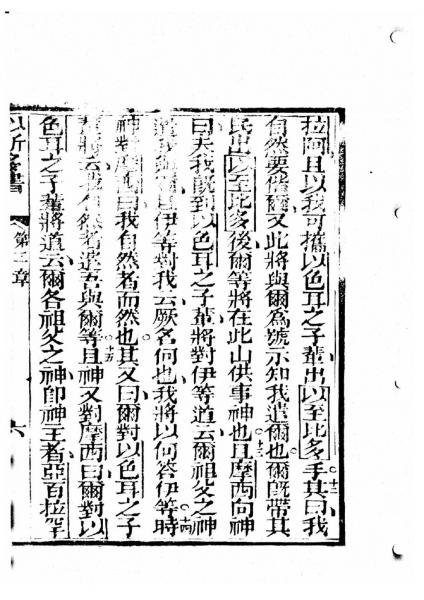 拉阿且以我可攜以色耳之子輩出以至比多手十二其曰我
自然要偕爾又此將與爾為號示知我遣爾也爾既帶其
民出以至比多後爾等將在此山供事神也十三且摩西向神
曰夫我既到以色耳之子輩將對伊等道云爾祖父之神
遣我 且伊等對我云厥名何也我將以何答伊等時十四
神對摩西曰我自然者而然也其又曰爾對以色耳之子
輩將云我自然者遣吾與爾等十五且神又對摩西曰爾對以
色耳之子輩將道云爾各祖父之神即神王者亞百拉罕
書 第二章 六